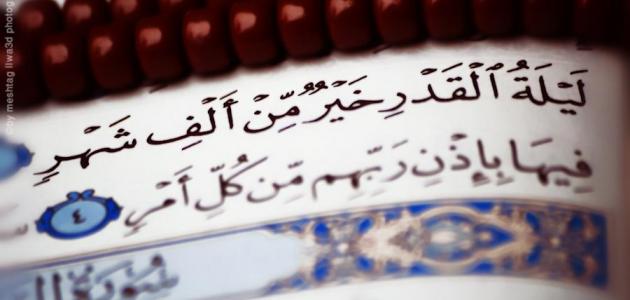 لَيْلَةُ ٱلْقَدْرِ خَيْرٌ مِّنْ أَلْفِ شَهْرٍ
فِيهَا بِإِذْنِ رَبِّهِم مِّن كُلِّ أَمْرٍ ٤
سُورَةُ
by meshtag liwa3d photog